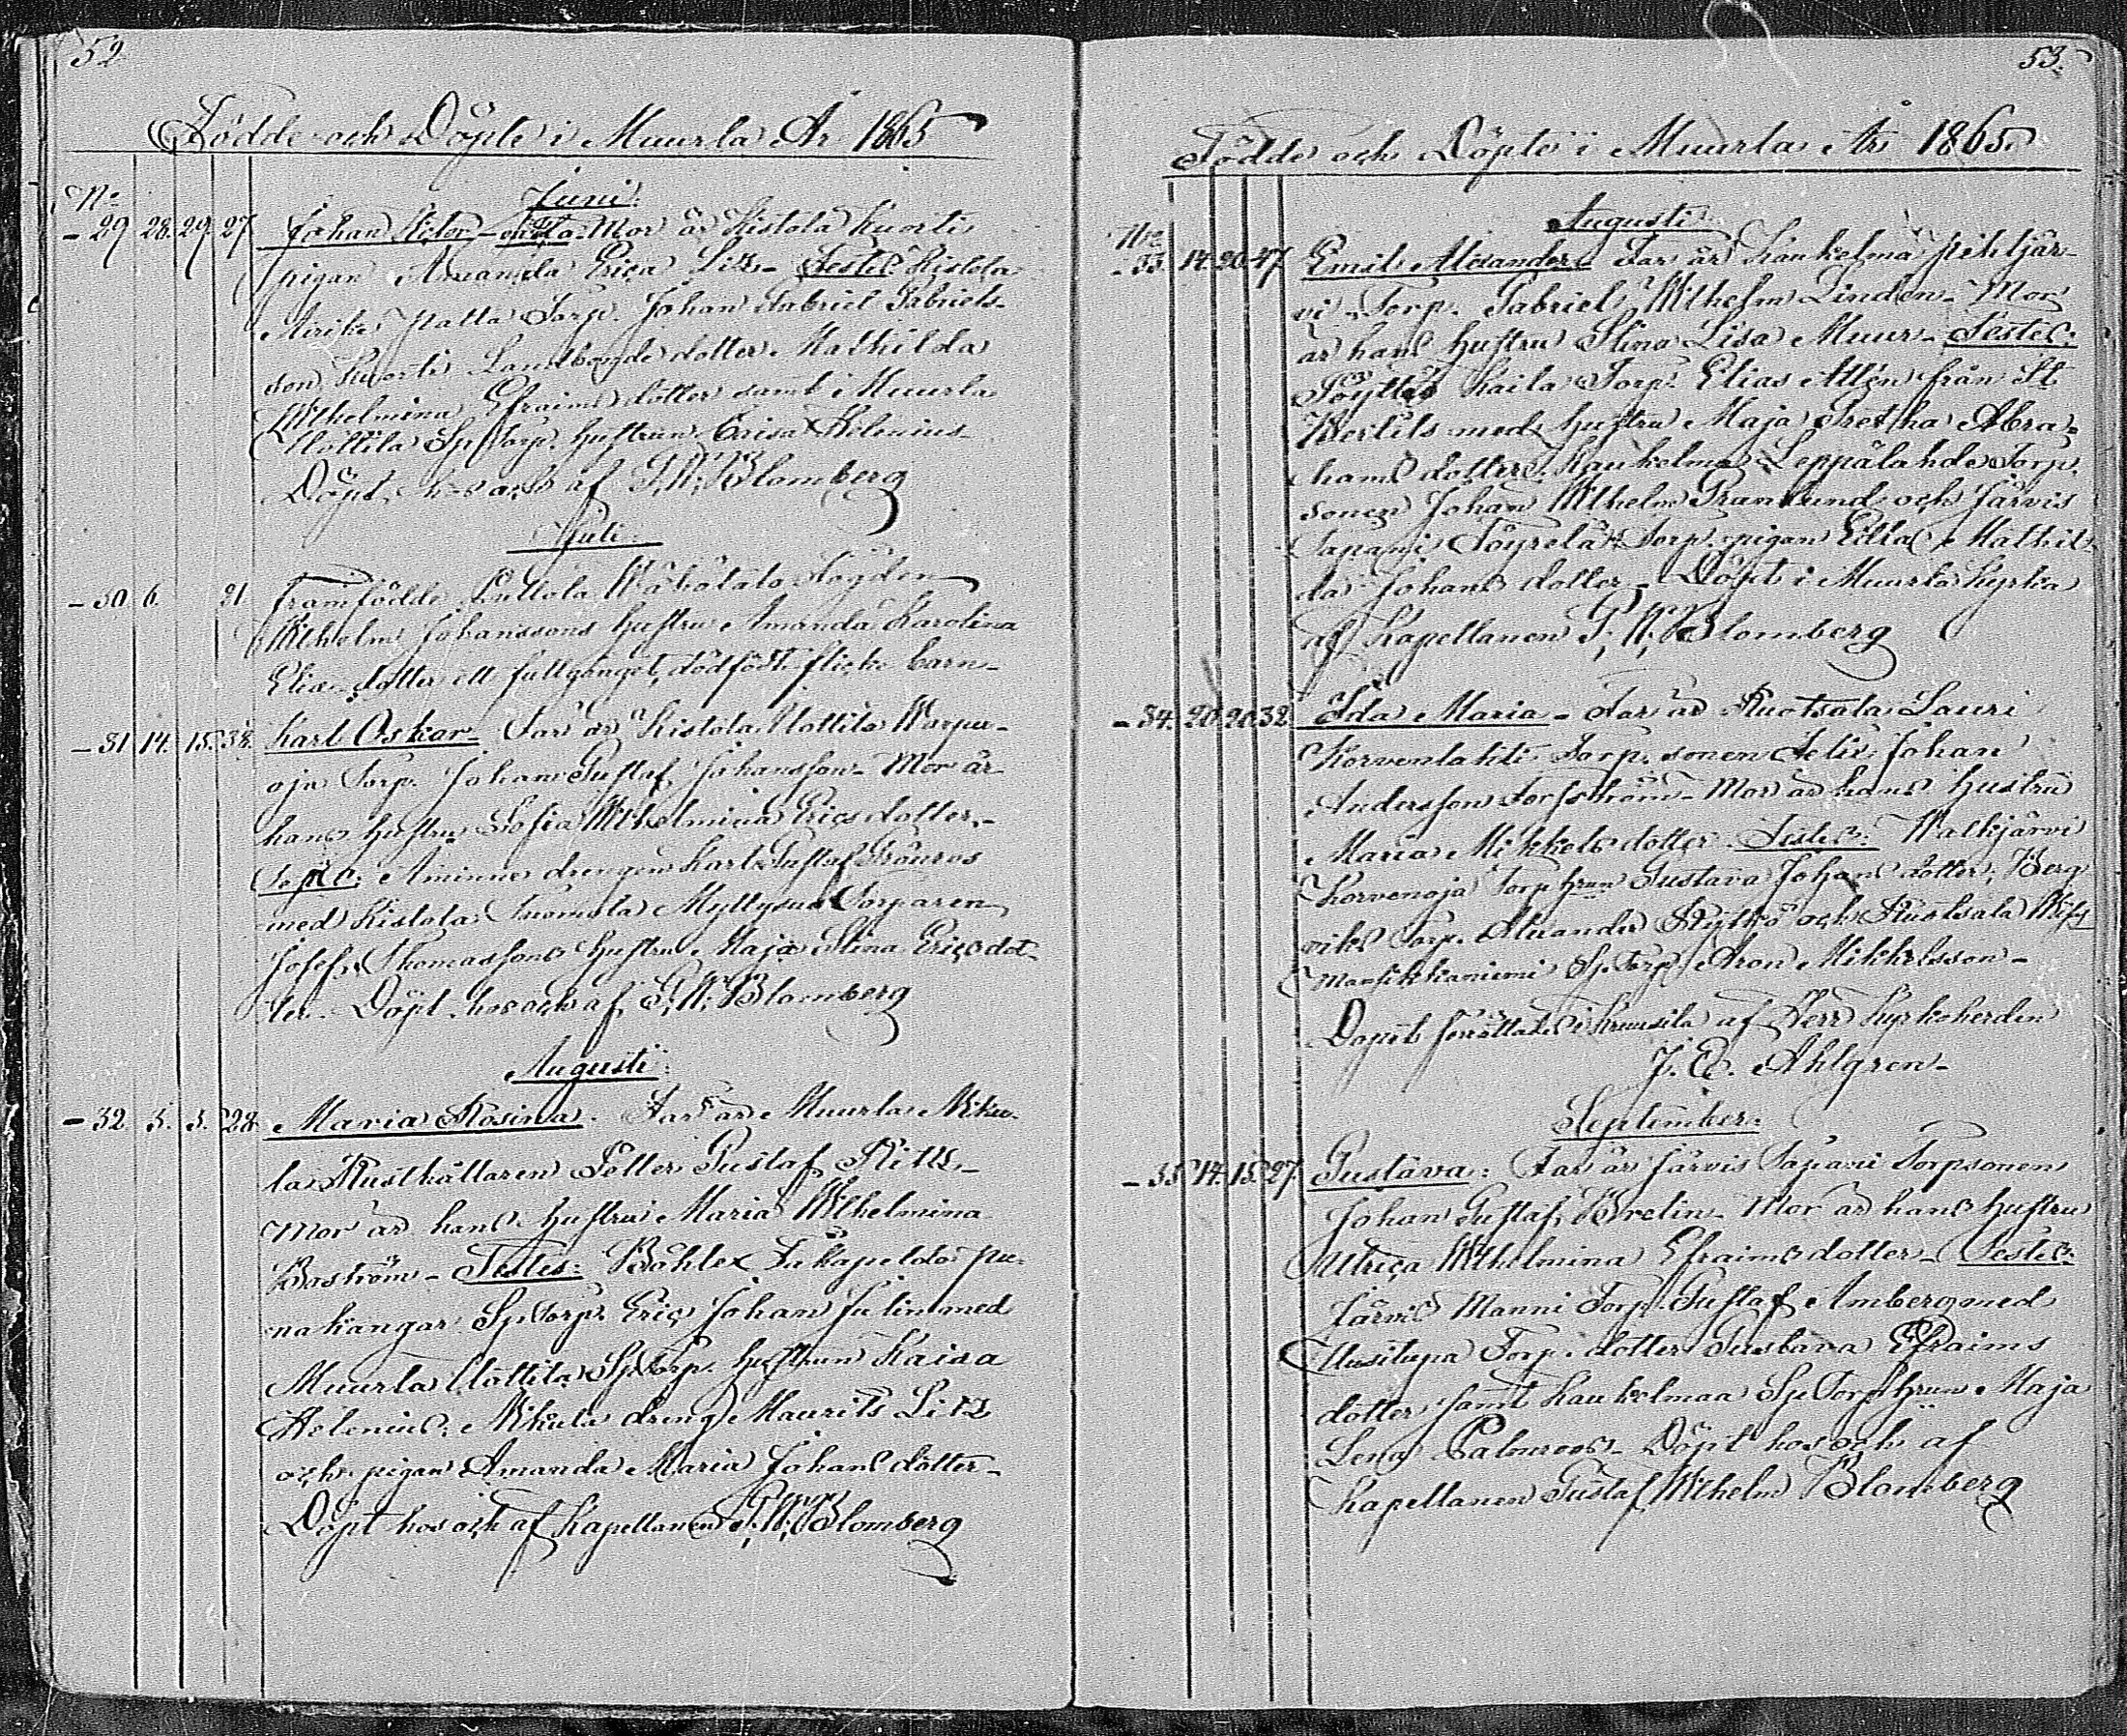 52
Födde och Döpte i Muurla År 1865
Juni:
No
- 29 28. 29. 27 Johan Mor är Kistola Kuorti
pigan Amanda Erica Testes Kistola
Torp. Johan Gabriel Gabriels-
son, Kuorti Landbonde dotter Mathilda
Wilhelmina Efraims dotter samt i Muurla
Ylöttila SpTorp. hustrun Caisa Helenius-
Döpt hos och af G. W. Blomberg
Juli:
- 30. 6. 21. framfödde Puttola Lögden
Wilhelm Johanssons hustru Amanda Karolina
Eliæ dotter ett fullgånget, dödfödt flicko barn-
- 31 14. 15. 38. Karl Oskar- Far är Kistola Ylöttila Warpu-
oja Torp. Johan Gustaf Johansson- Mor är
hans hustru Sofia Wilhelmina Erics dotter.-
Testes: Åminne drengen Karl Gustaf
med Kistola Tuomola Myllysuo Torparen
Josef Thomassons hustru Maja Stina Erics dot-
ter- Döpt hos och af G. W. Blomberg
Augusti:
- 32 5. 5. 28. Maria Rosina. Far är Muurla Miku-
la Rusthållaren Petter Gustaf
Mor är hans hustru Maria Wilhelmina
Boström- Testes: Pu-
nakangas SpTorp. Eric Johan Julin med
Muurla Ylöttila SpTorp. hustrun Kaisa
Helenius; Mikula dreng Maurits
och pigan Amanda Maria Johans dotter-
Döpt hos och af Kapellanen G. W. Blomberg
53.
Födde och Döpte i Muurla År 1865.
Augusti
No
- 33. 14. 20. 47 Emil Alexander- Far är Kaukelma Pihljär-
vi Torp. Gabriel Wilhelm Linden- Mor
är hans hustru Stina Lisa Muur- Testes:
Pöytiö Kaila Torp. Elias från St.
med hustru Maja Gretha Abra-
hams dotter; Kaukelma Leppälahde Torp.
sonen Johan Wilhelm Granlund och Järvis
Tapani Töyrelä Torp. pigan Mathil-
da Johans dotter- Döpt i Muurla Kyrka
af Kapellanen G. W. Blomberg
- 34. 20. 20. 32. Ida Maria- Far är Ruotsala Lauri
Korvenlahti Torp. sonen Felix Johan
Andersson Forsström- Mor är hans hustru
Maria Mikkels dotter. Testes: Walkjärvi
Korvenoja Torp hrun Gustava Johans dotter; Berg
viks Torp. Alexander och Ruotsala
Mansikkaniemi Sp.Torp. Aron Mikkelsson-
Dopet förättades i af Herr Kyrkoherden
J. E. Ahlgren-
September:
- 35 14. 15. 27. Gustava: Far är Järvis Tapani Torpsonen
Johan Gustaf Mor är hans hustru
Ulrica Wilhelmina Efraims dotter- Testes:
Järvis Manni Torp. Gustaf Amberg med
Uusitupa Torp. dotter Gustava Efraims
dotter samt Kaukelmaa Sp.Torphrun Maja
Lena Palmroos- Döpt hos och af
Kapellanen Gustaf Wilhelm Blomberg